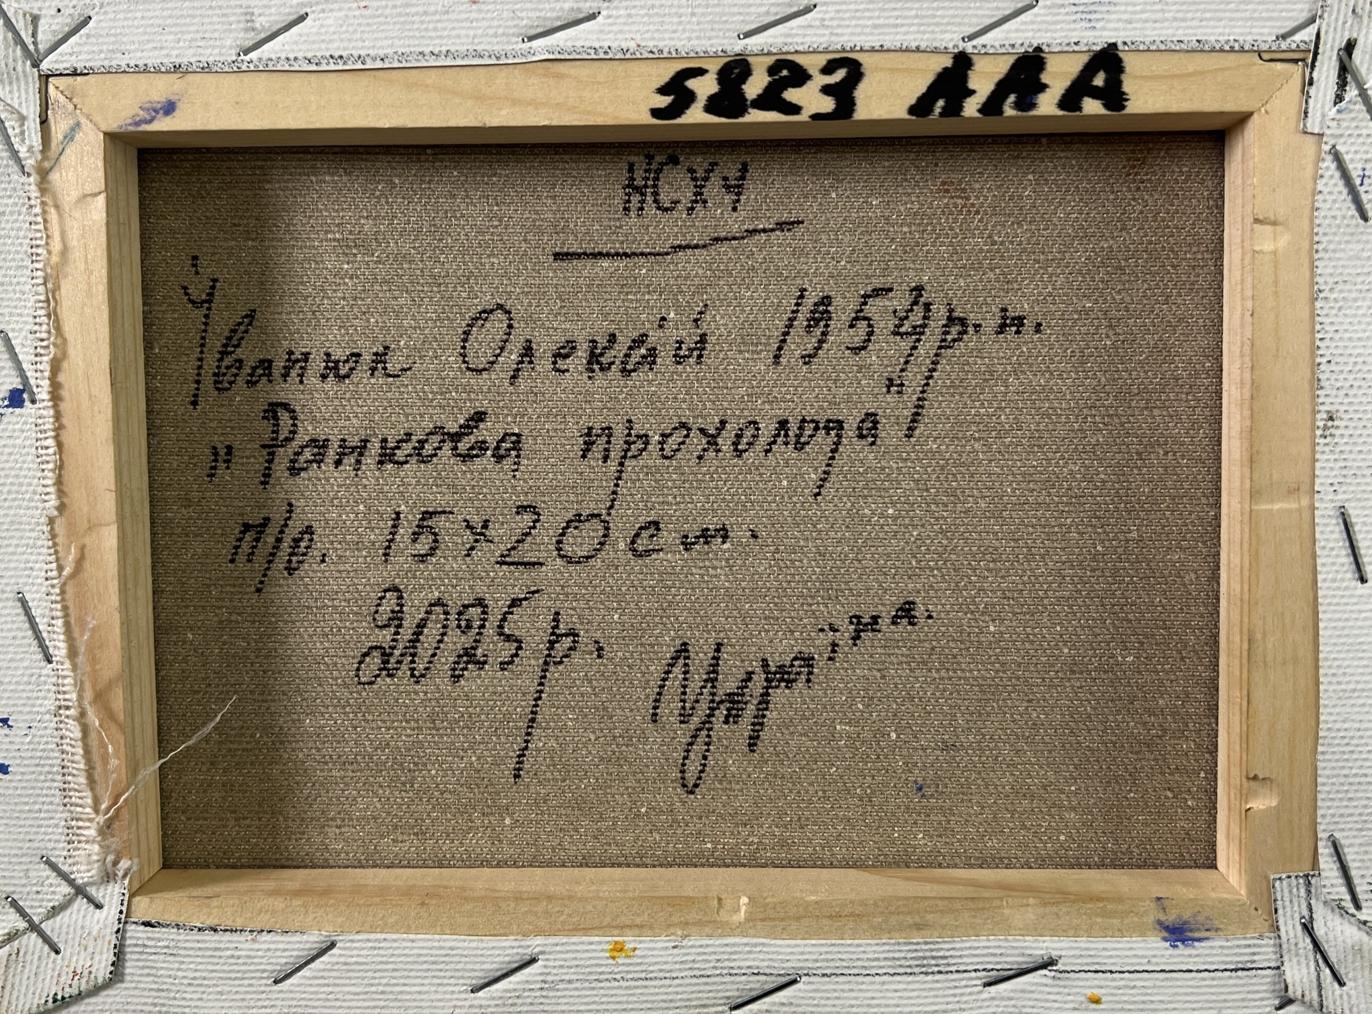 5823 ААА
НСХУ
Іванюк Олексій 1954р.н.
"Ранкова прохолода"
п/о. 15х20см.
2025р. Україна.